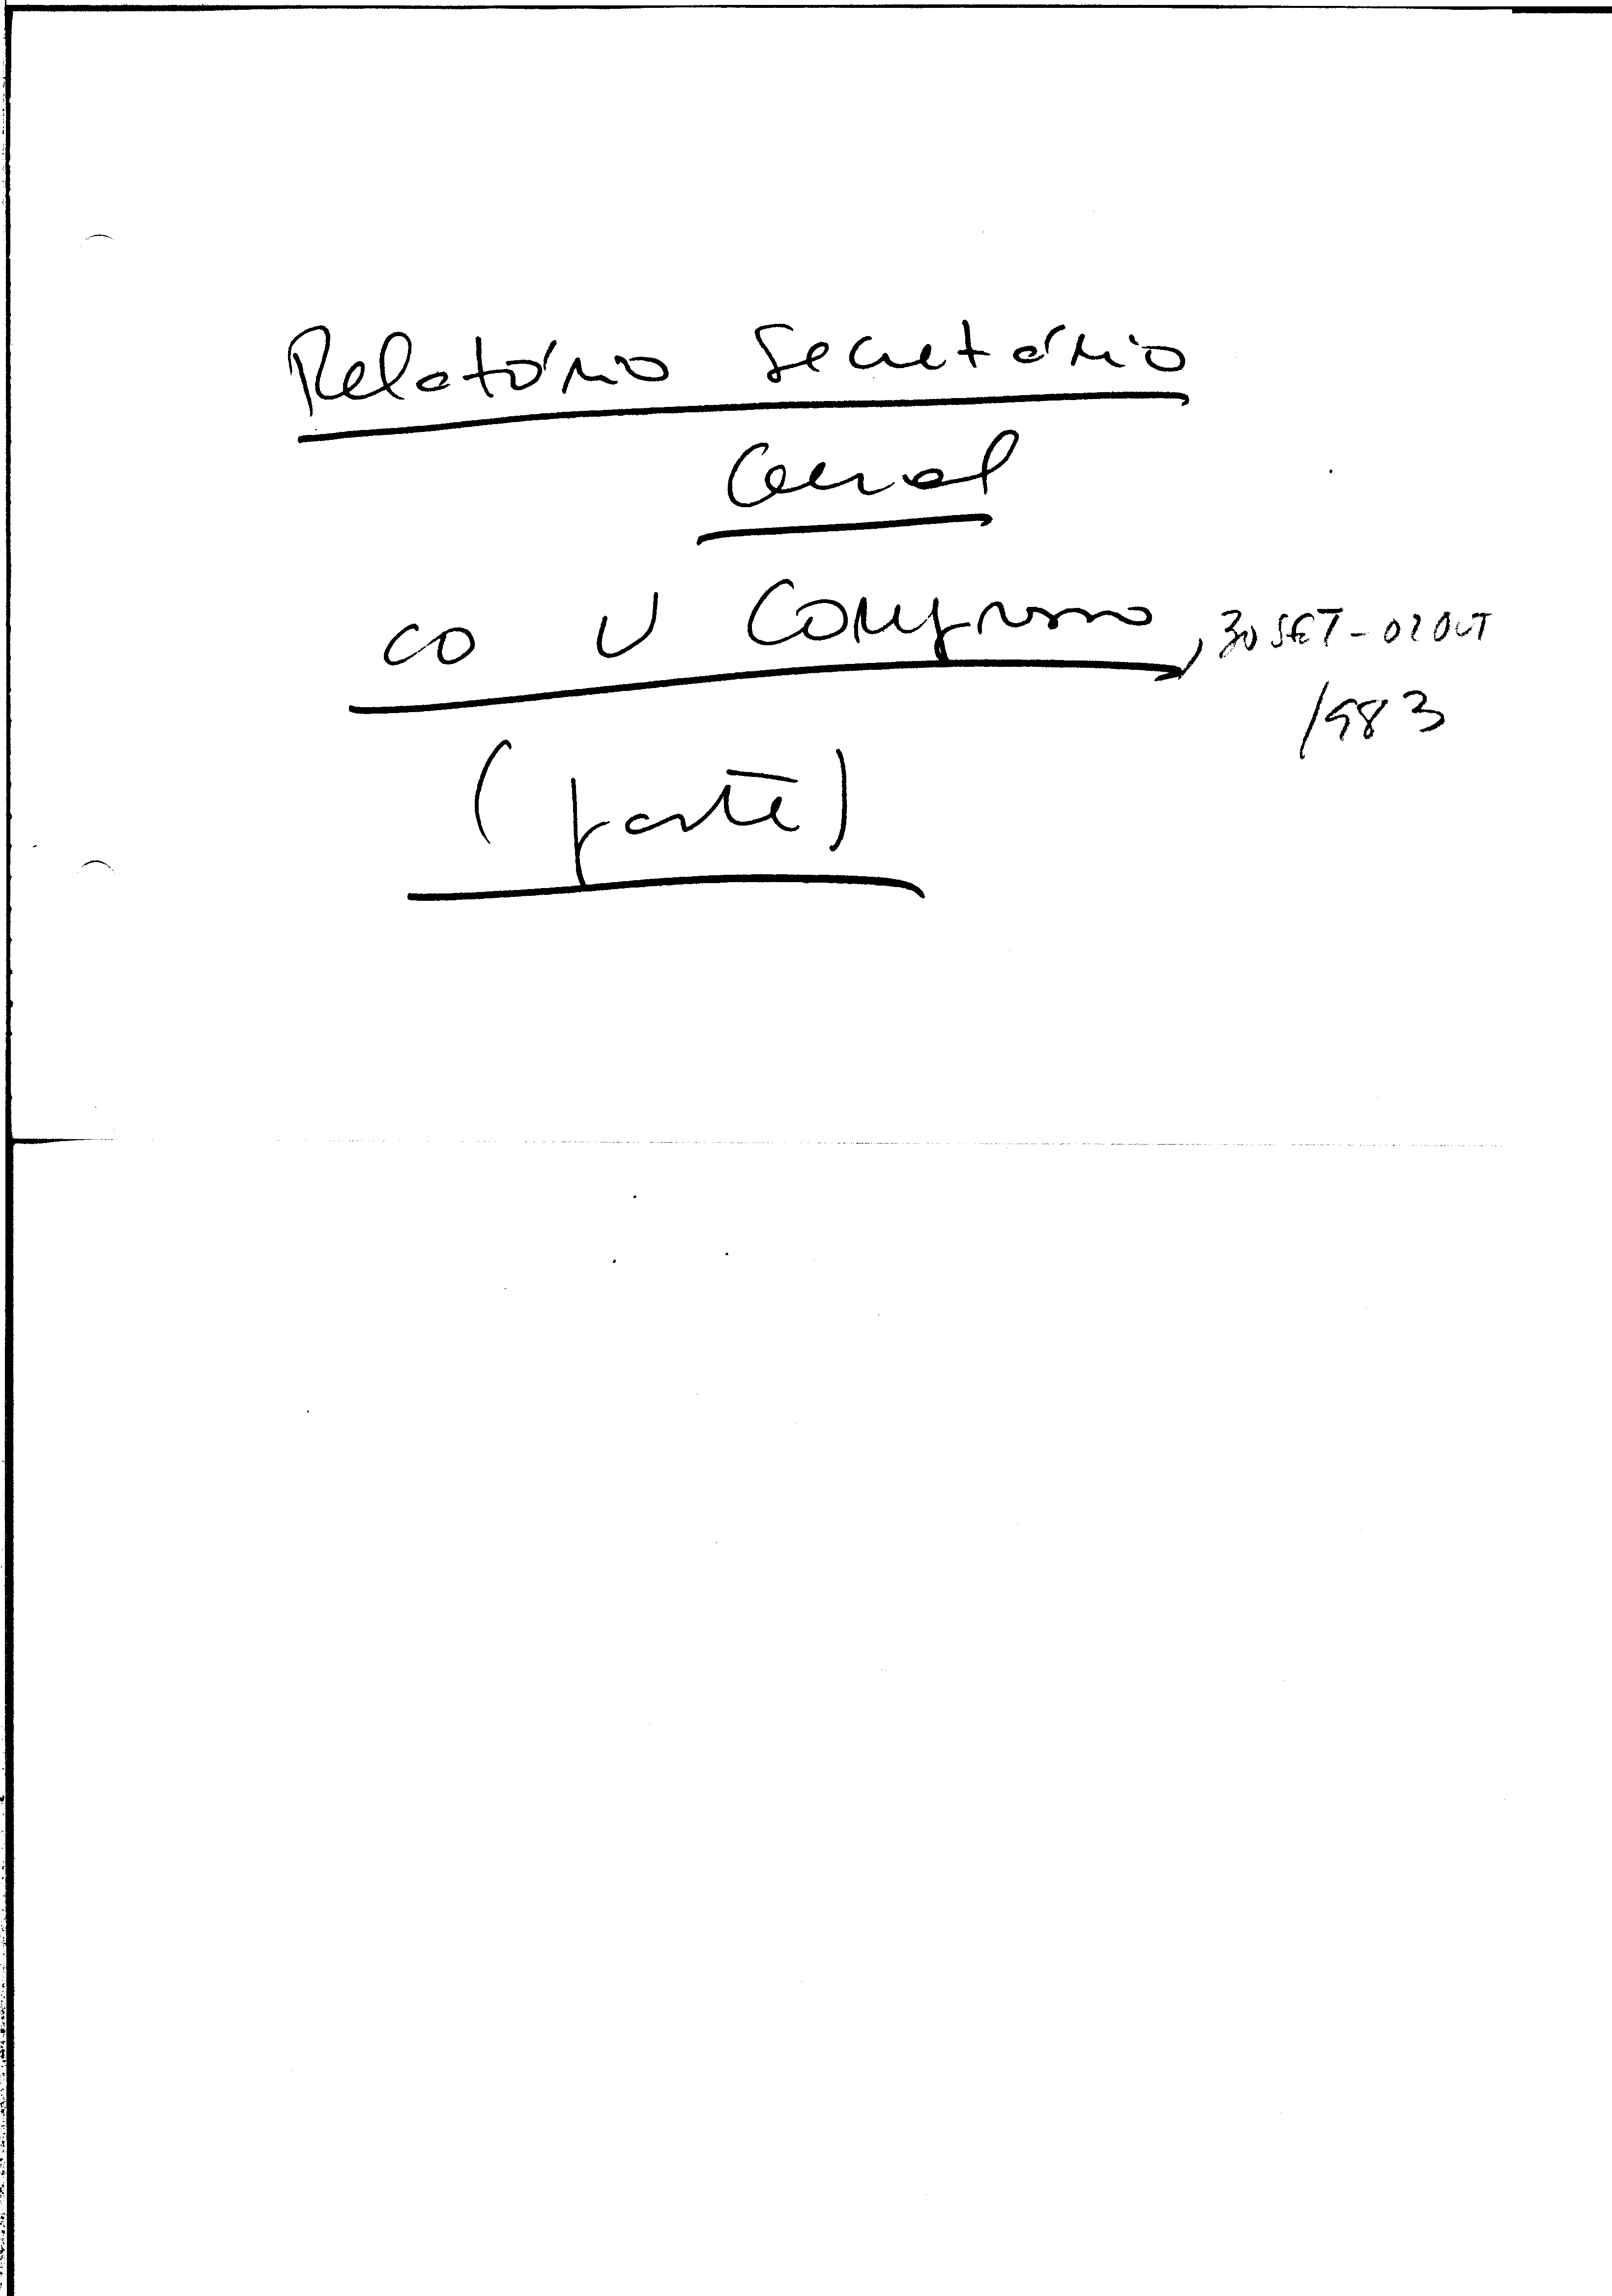 Relatório Secretário
Geral
ao V Congresso, 30 SET - 02 OUT
1983
(parte)